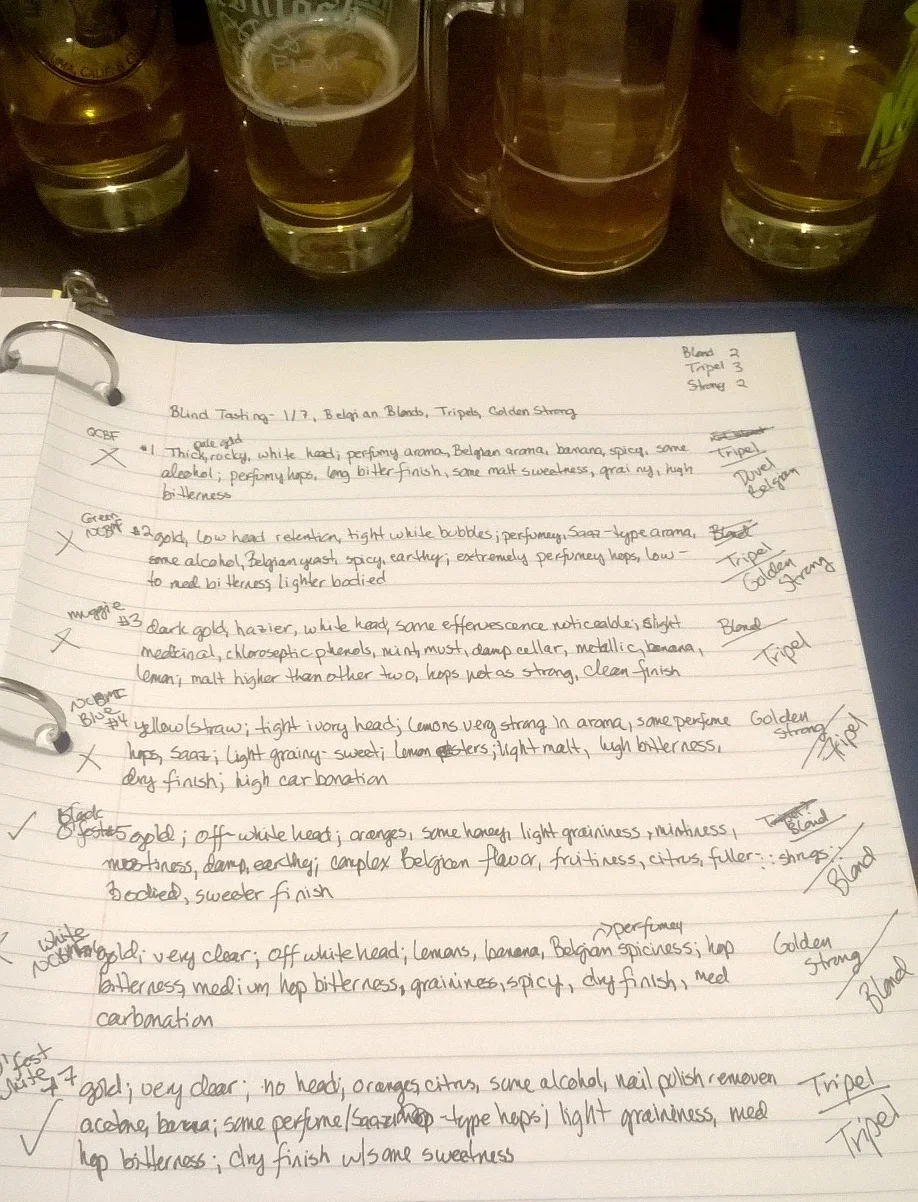 Blond 2
Tripel 3
Strong 2
Blind Tasting - 1/7, Belgian Blonds, Tripels, Golden Strong
OCBF
pale gold
#1 Thick, rocky, white head; perfumy aroma, Belgian aroma, banana, spicy, some
alcohol; perfumy hops, long bitter finish, some malt sweetness, grainy, high
bitterness
Tripel
Duvel
Belgian
Green
NCBMF #2 gold, low head retention, tight white bubbles; perfumey, Saaz-type aroma,
some alcohol, Belgian yeast, spicy, earthy; extremely perfumey hops, low-
to med bitterness, lighter bodied
Blond
Tripel
Golden
Strong
muggie
#3 dark gold, hazier, white head, some effervescence noticeable; slight
medicinal, chloroseptic phenols, mint, must, damp cellar, metallic, banana,
lemon; malt higher than other two, hops not as strong, clean finish
Blond
Tripel
Blue
#4 yellow/straw; tight ivory head; lemons very strong in aroma, some perfume
hops, Saaz; light grainy-sweet; lemon esters; light malt, high bitterness,
dry finish; high carbonation
Golden
Strong
Tripel
Black
O'fest #5 gold; off-white head; oranges, some honey, light graininess, mintiness,
moistiness, damp, earthy; complex Belgian flavor, fruitiness, citrus, fuller-
bodied, sweeter finish
Blond
shrugs
Blond
White
gold; very clear; off white head; lemons, banana, Belgian spiciness; hop
perfumey
bitterness, medium hop bitterness, graininess, spicy, dry finish, med
carbonation
Golden
Strong
Blond
O'fest
white #7 gold; very clear; no head; oranges, citrus, some alcohol, nail polish remover
acetone, banana; some perfume/Saaz -type hops; light graininess, med
hop bitterness; dry finish w/some sweetness
Tripel
Tripel